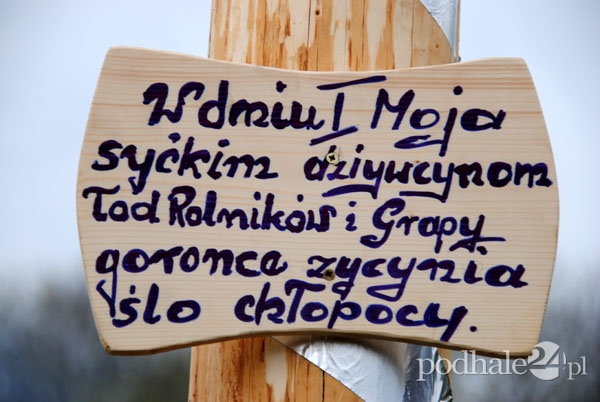 W dniu I Moja
syćkim dziywcynom
Tod Rolników i Grapy
goronce zycynia
ślo ckłopocy.
podhale24.pl